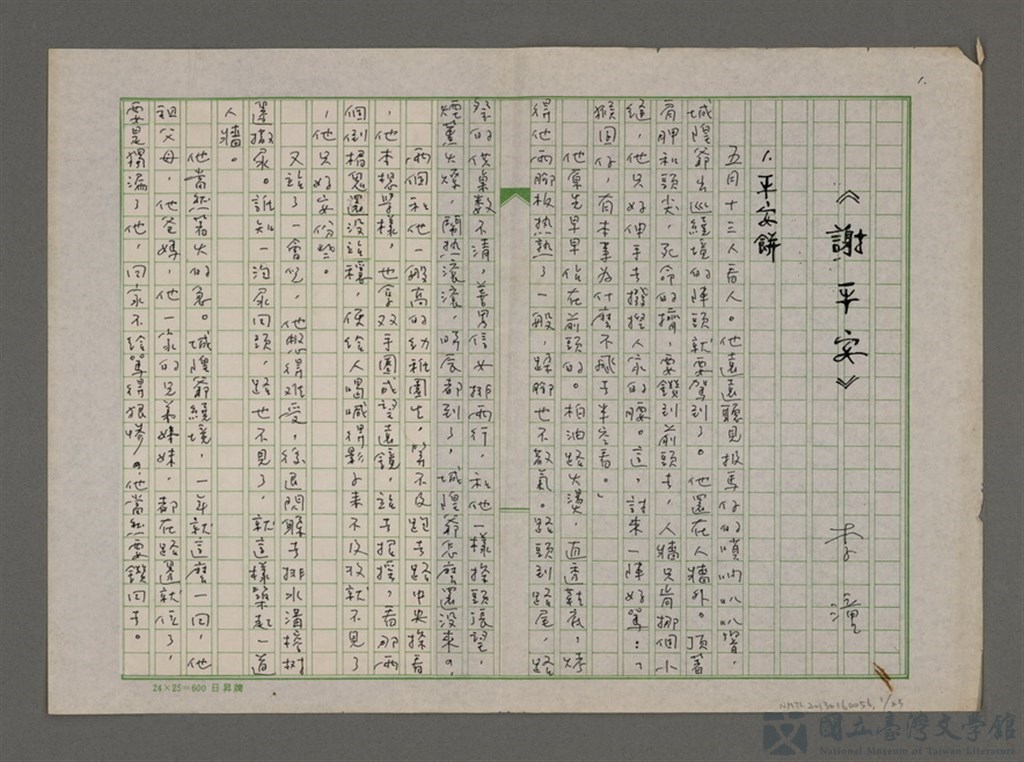 1.
《謝平安》
李潼
1.平安餅
五月十三人看人。他遠遠聽見報馬仔的嗩吶叭叭響，
城隍爺出巡繞境的陣頭就要駕到了。他還在人牆外。頂著
肩胛和頭尖，死命的擠，要鑽到前頭去，人牆只肯挪個小
縫，他只好伸手去撥捏人家的腰。這，討來一陣好罵：「
猴囝仔，有本事為什麼不飛去半空看。」
他原先早早佔在前頭的。柏油路火燙，直透鞋底，烤
得他兩腳板熱熱了一般，跺腳也不散氣。路頭到路尾，路
祭的供桌數不清，善男信女排兩行，和他一樣探頭張望，
煙薰火燎，鬧熱滾滾，時辰都到了，城隍爺怎麼還沒來。
兩個和他一般高的幼稚園生，等不及跑去路中央探看
，他本想學樣，也拿双手圈成望遠鏡，站去搖擺，看那兩
個倒楣鬼還沒站穩，便給人喝喊得影子來不及收就不見了
，他只好安份些。
又站了一會兒，他憋得難受，後退閃躲去排水溝榕樹
邊撒尿。誰知一泡尿回頭，路也不見了，就這樣築起一道
人牆。
他當然著火的急。城隍爺繞境，一年就這麼一回，他
祖父母，他爸媽，他一家的兄弟妹妹，都在路邊就位了，
要是獨漏了他，回家不給罵得狠慘？他當然要鑽回去。
24×25=600 日昇牌
NMTL20130160056, 1/23
國立臺灣文學館
National Museum of Taiwan Literature